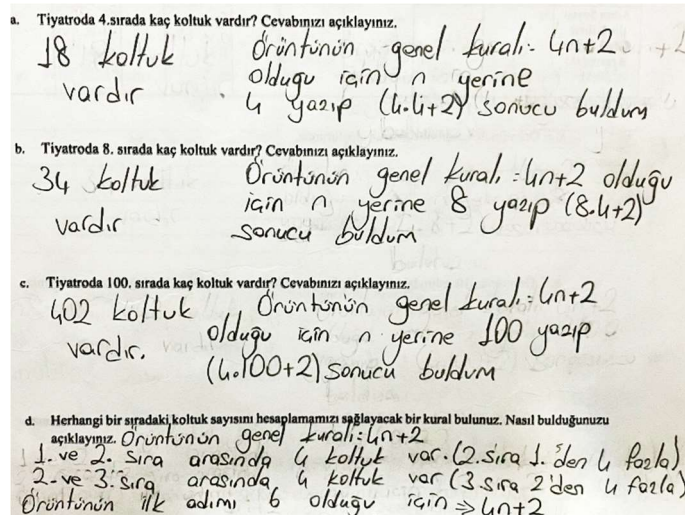 a. Tiyatroda 4.sırada kaç koltuk vardır? Cevabınızı açıklayınız.
18 koltuk
vardır
Örüntünün genel kuralı= 4n+2
olduğu için n yerine
4 yazıp (4.4+2) sonucu buldum
b. Tiyatroda 8. sırada kaç koltuk vardır? Cevabınızı açıklayınız.
34 koltuk
vardır
Örüntünün genel kuralı =4n+2 olduğu
için n yerine 8 yazıp (8.4+2)
sonucu buldum
c. Tiyatroda 100. sırada kaç koltuk vardır? Cevabınızı açıklayınız.
402 koltuk
vardır.
Örüntünün genel kuralı=4n+2
olduğu için n yerine 100 yazıp
(4.100+2) sonucu buldum
d. Herhangi bir sıradaki koltuk sayısını hesaplamamızı sağlayacak bir kural bulunuz. Nasıl bulduğunuzu
açıklayınız. Örüntünün genel kuralı=4n+2
1. ve 2. sıra arasında 4 koltuk var. (2.sıra 1.'den 4 fazla)
2-ve 3. sıra arasında 4 koltuk var (3.sıra 2'den 4 fazla)
Örüntünün ilk adımı 6 olduğu için ⇒ 4n+2